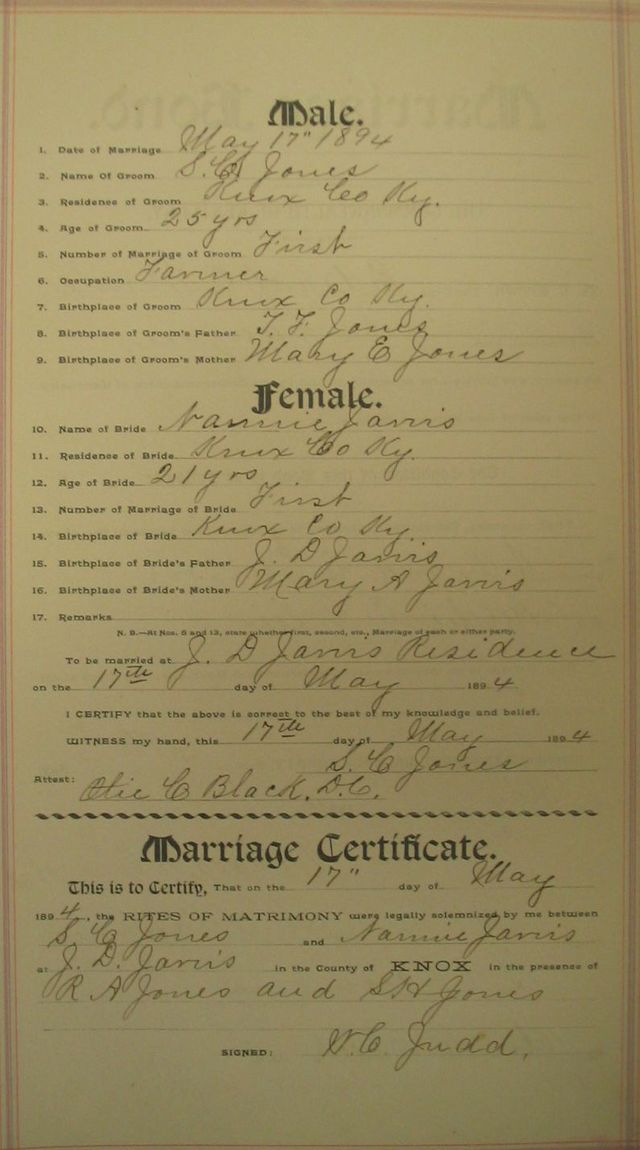 Male.
1. Date of Marriage May 17" 1894
2. Name Of Groom S. C. Jones
3. Residence of Groom Knox Co Ky.
4. Age of Groom 25 yrs
5. Number of Marriage of Groom First
6. Occupation Farmer
7. Birthplace of Groom Knox Co Ky.
8. Birthplace of Groom's Father T. F. Jones
9. Birthplace of Groom's Mother Mary E Jones
Female.
10. Name of Bride Nannie Jarvis
11. Residence of Bride Knox Co Ky.
12. Age of Bride 21 yrs
13. Number of Marriage of Bride First
14. Birthplace of Bride Knox Co Ky.
15. Birthplace of Bride's Father J. D Jarvis
16. Birthplace of Bride's Mother Mary A Jarvis
17. Remarks
N. B.—At Nos. 5 and 13, state whether first, second, etc., Marriage of each or either party.
To be married at J. D Jarvis Residence
on the 17th day of May 1894
I CERTIFY that the above is correct to the best of my knowledge and belief.
WITNESS my hand, this 17th day of May 1894
S. C Jones
Attest: Otie C Black. D.C.
Marriage Certificate.
This is to Certify, That on the 17" day of May
1894, the RITES OF MATRIMONY were legally solemnized by me between
S. C Jones and Nannie Jarvis
at J. D. Jarvis in the County of KNOX in the presence of
R A Jones and S H Jones
SIGNED: W. C. Judd.